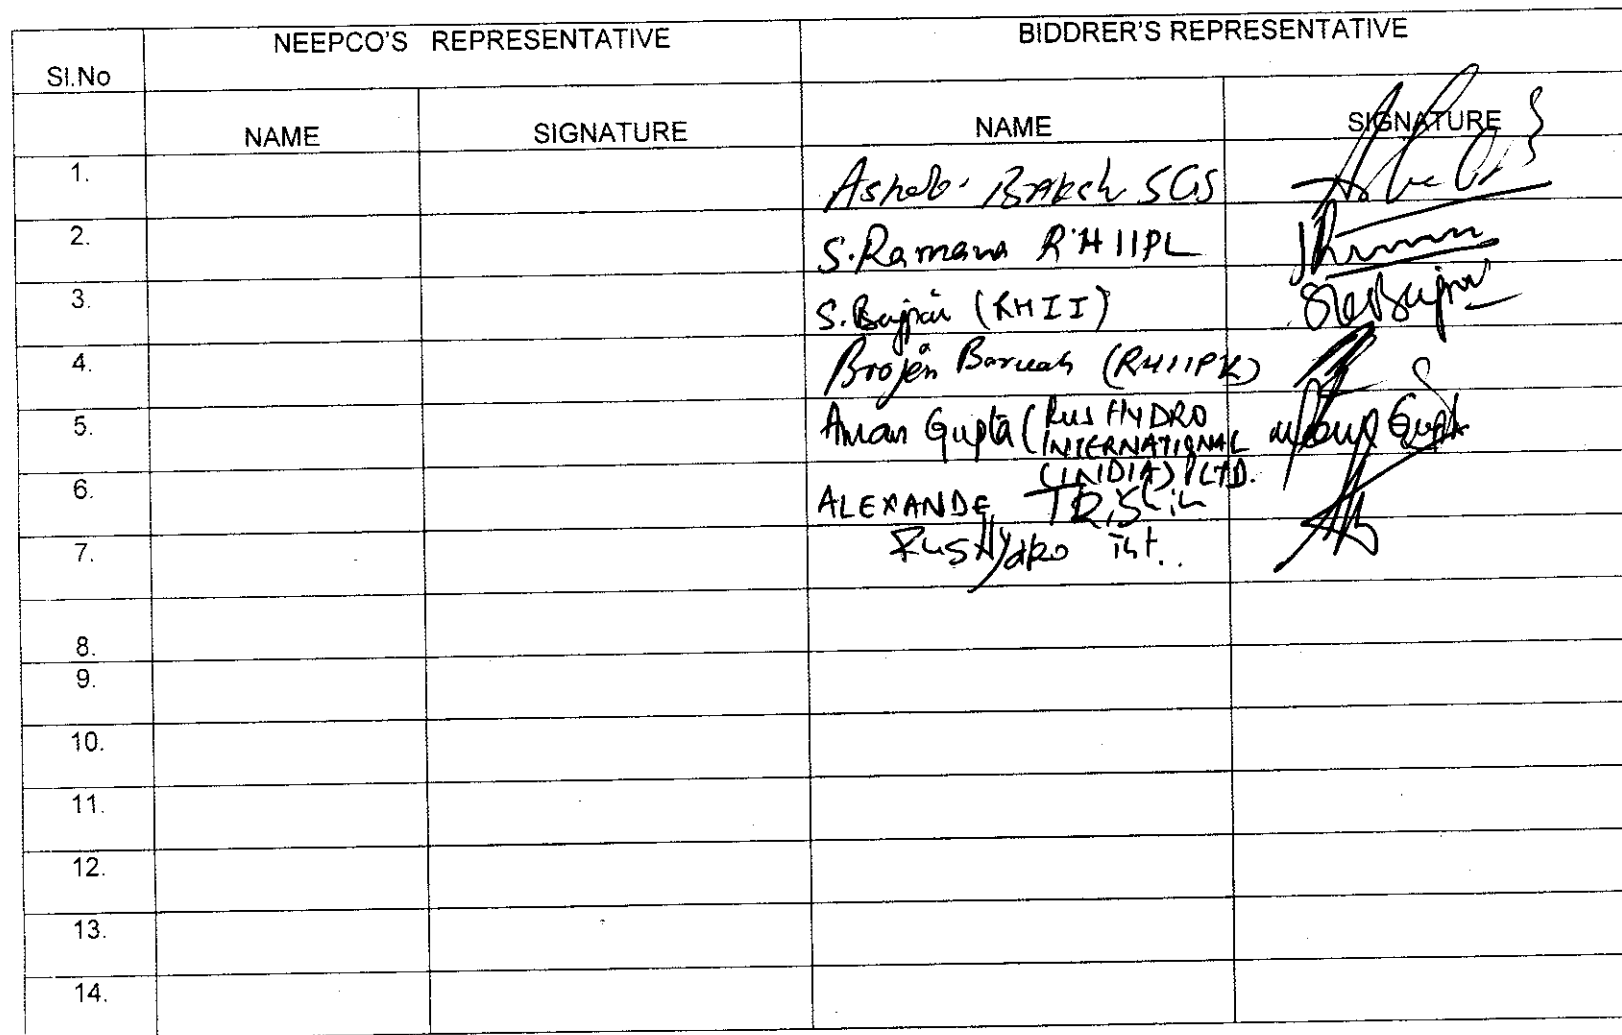 NEEPCO'S REPRESENTATIVE BIDDRER'S REPRESENTATIVE
SI.No
NAME SIGNATURE NAME SIGNATURE
1. SGS
2. S.Ramana RHIIPL
3. S.Bajpai (RHII)
4. Brojen Baruah
5. Aman Gupta (RusHYDRO
INTERNATIONAL
(INDIA) PLTD.
6. ALEXANDE TRiShin
7. RusHydro int..
8.
9.
10.
11.
12.
13.
14.